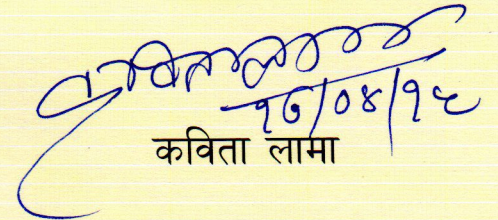 कविता लामा
१७/०४/१९
कविता लामा